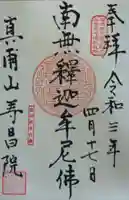 奉拝 令和三年
四月十七日
南無釋迦牟尼佛
真甫山寿昌院